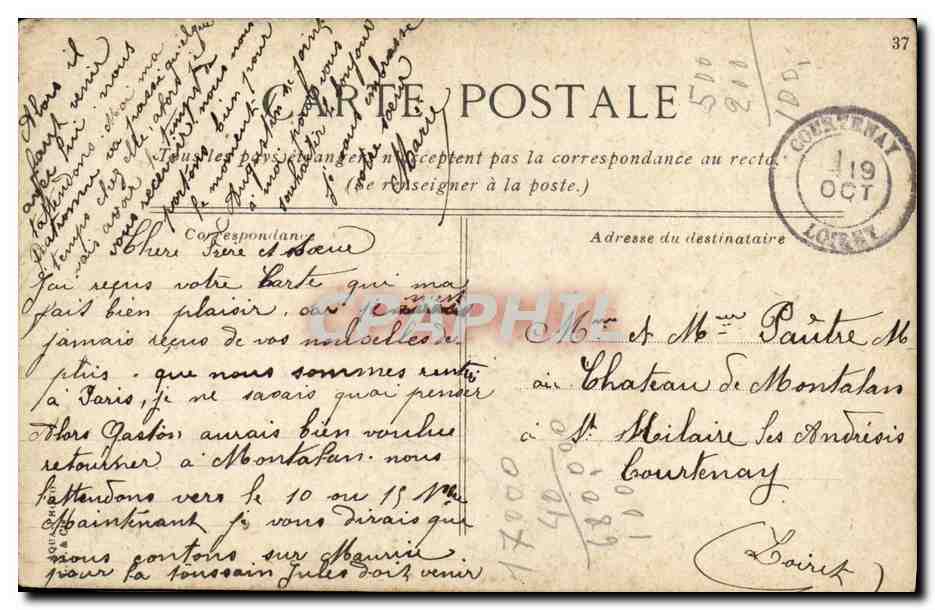 37
CARTE POSTALE
Tous les pays étrangers n'acceptent pas la correspondance au recto.
(se renseigner à la poste.)
Correspondance
Adresse du destinataire
COURTENAY
19
OCT
LOIRET
Chere Frère et Soeur
J'ai reçus votre Carte qui ma
fait bien plaisir. car je
jamais reçus de vos nouvelles de
plus. que nous sommes rentré
à Paris, je ne savais quoi penser
Alors Gaston aurais bien voulue
retourner à Montalan. nous
l'attendons vers le 10 ou 15 9bre
Maintenant Je vous dirais que
nous contons sur Maurice
pour la toussain Jules doit venir
Alors il
venir
avec lui nous
l'attendons. Moi ma
Patronne va passé quelque
temps chez elle, abord je
vais avoir
vous recevoir nous nous
portons bien pour
le moment
Augustin se joint
à moi pour vous
souhaiter le bonjour
Je vous embrasse
votre soeur
Marie
Mme et Mr Pautre M
au Chateau de Montalan
à St Hilaire les Andrésis
Courtenay
(Loiret)
500
200
100,
17000
40
68000
100
CPAPHIL